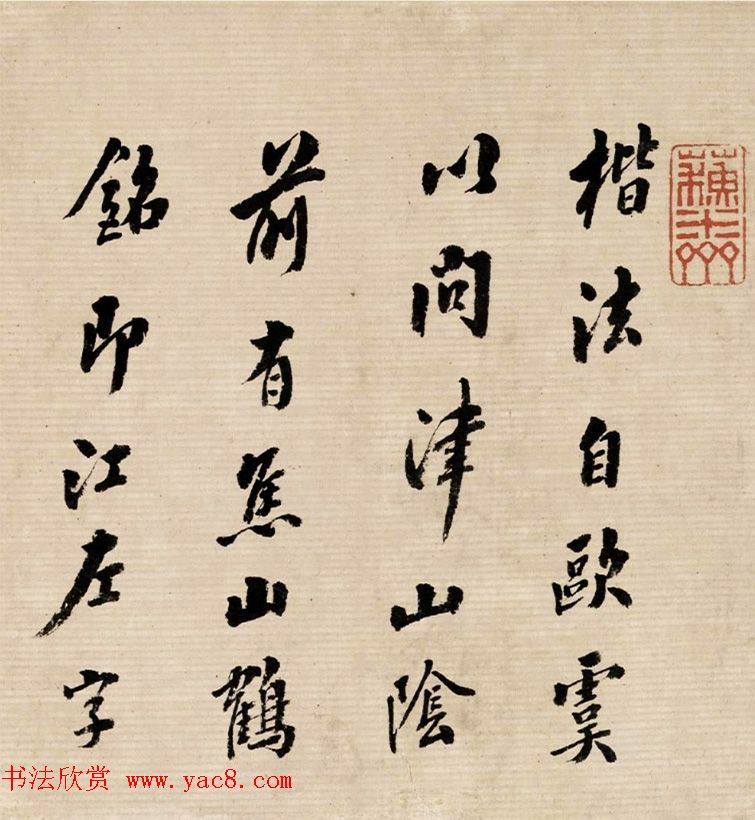 楷法自歐虞
以問津山陰
前有焦山鶴
銘即江左字
蘇齋
书法欣赏 www.yac8.com